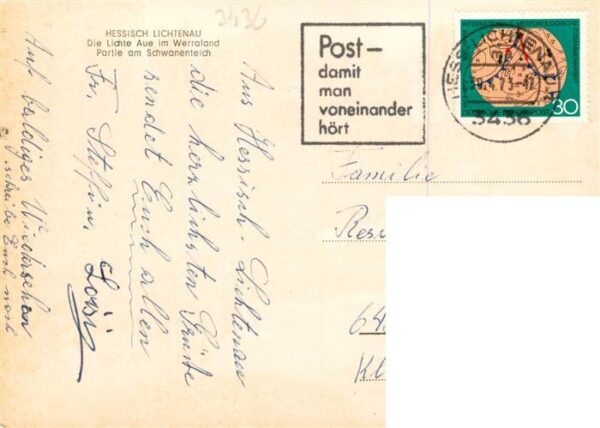 3436
HESSISCH LICHTENAU
Die Lichte Aue im Werraland
Partie am Schwanenteich
Post-
damit
man
voneinander
hört
INTERNATIONALE METEOROLOGISCHE
DEUTSCHE BUNDESPOST
30
HESS. LICHTENAU
3436
Aus Hessisch-Lichtenau
die herzlichsten Grüße
sendet Euch allen
Fr.
Auf baldiges Wiedersehen
schreibe Euch noch
Familie
64